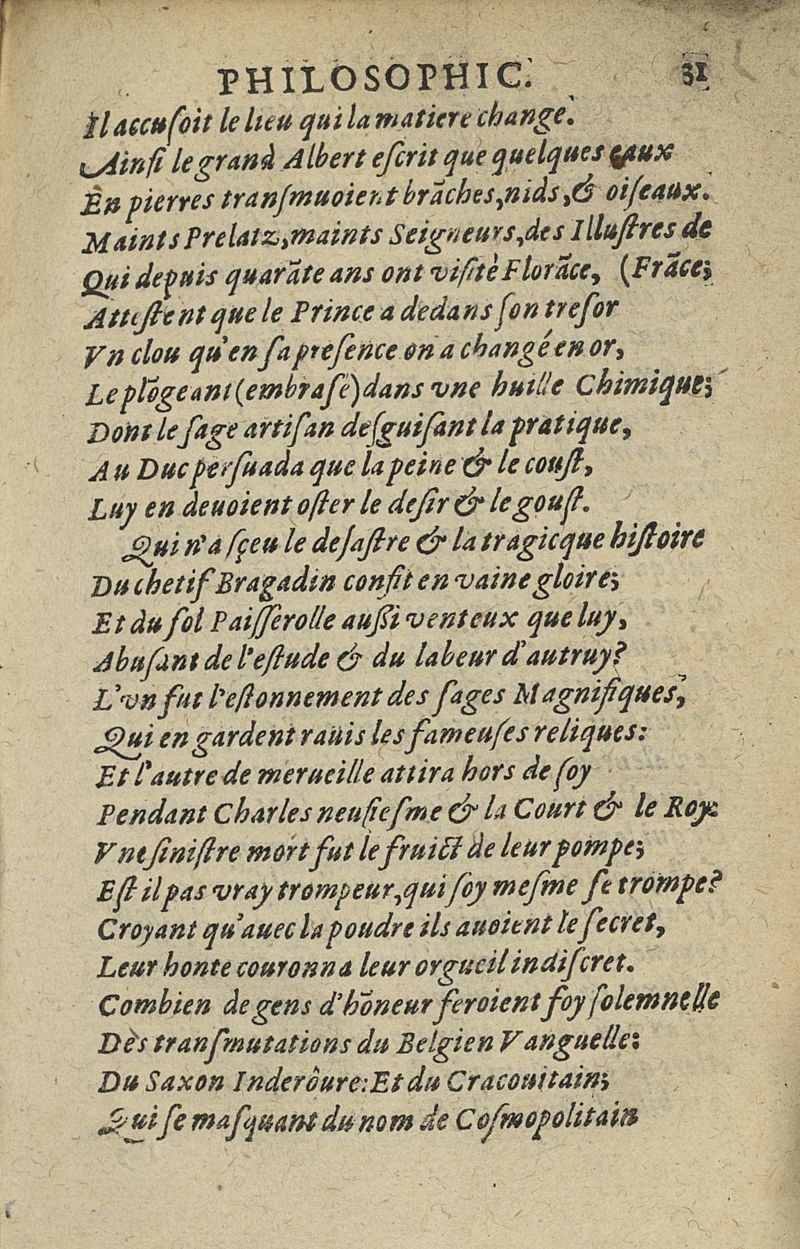 PHILOSOPHIC. 31
Il accuſoit le lieu qui la matiere change.
Ainſi le grand Albert eſcrit que quelques eaux
En pierres tranſmuoient brãches, nids, & oiſeaux.
Maints Prelatz, maints Seigneurs, des Illuſtres de
Qui depuis quarãte ans ont viſitè Florãce, (Frãce;
Atteſtent que le Prince a dedans ſon treſor
Vn clou qu'en ſa preſence on a changé en or,
Le plõgeant (embraſé) dans vne huille Chimique;
Dont le ſage artiſan deſguiſant la pratique,
Au Duc perſuada que la peine & le couſt,
Luy en deuoient oſter le deſir & le gouſt.
Qui n'a ſçeu le deſaſtre & la tragicque hiſtoire
Du chetif Bragadin confit en vaine gloire;
Et du fol Paiſſerolle auſſi venteux que luy,
Abuſant de l'eſtude & du labeur d'autruy?
L'vn fut l'eſtonnement des ſages Magnifiques,
Qui en gardent rauis les fameuſes reliques:
Et l'autre de merueille attira hors de ſoy
Pendant Charles neufieſme & la Court & le Roy.
Vne ſiniſtre mort fut le fruict de leur pompe;
Eſt il pas vray trompeur, qui ſoy meſme ſe trompe?
Croyant qu'auec la poudre ils auoient le ſecret,
Leur honte couronna leur orgueil indiſcret.
Combien de gens d'hõneur feroient foy ſolemnelle
Dès tranſmutations du Belgien Vanguelle:
Du Saxon Inderôure: Et du Cracouitain;
Qui ſe maſquant du nom de Coſmopolitain